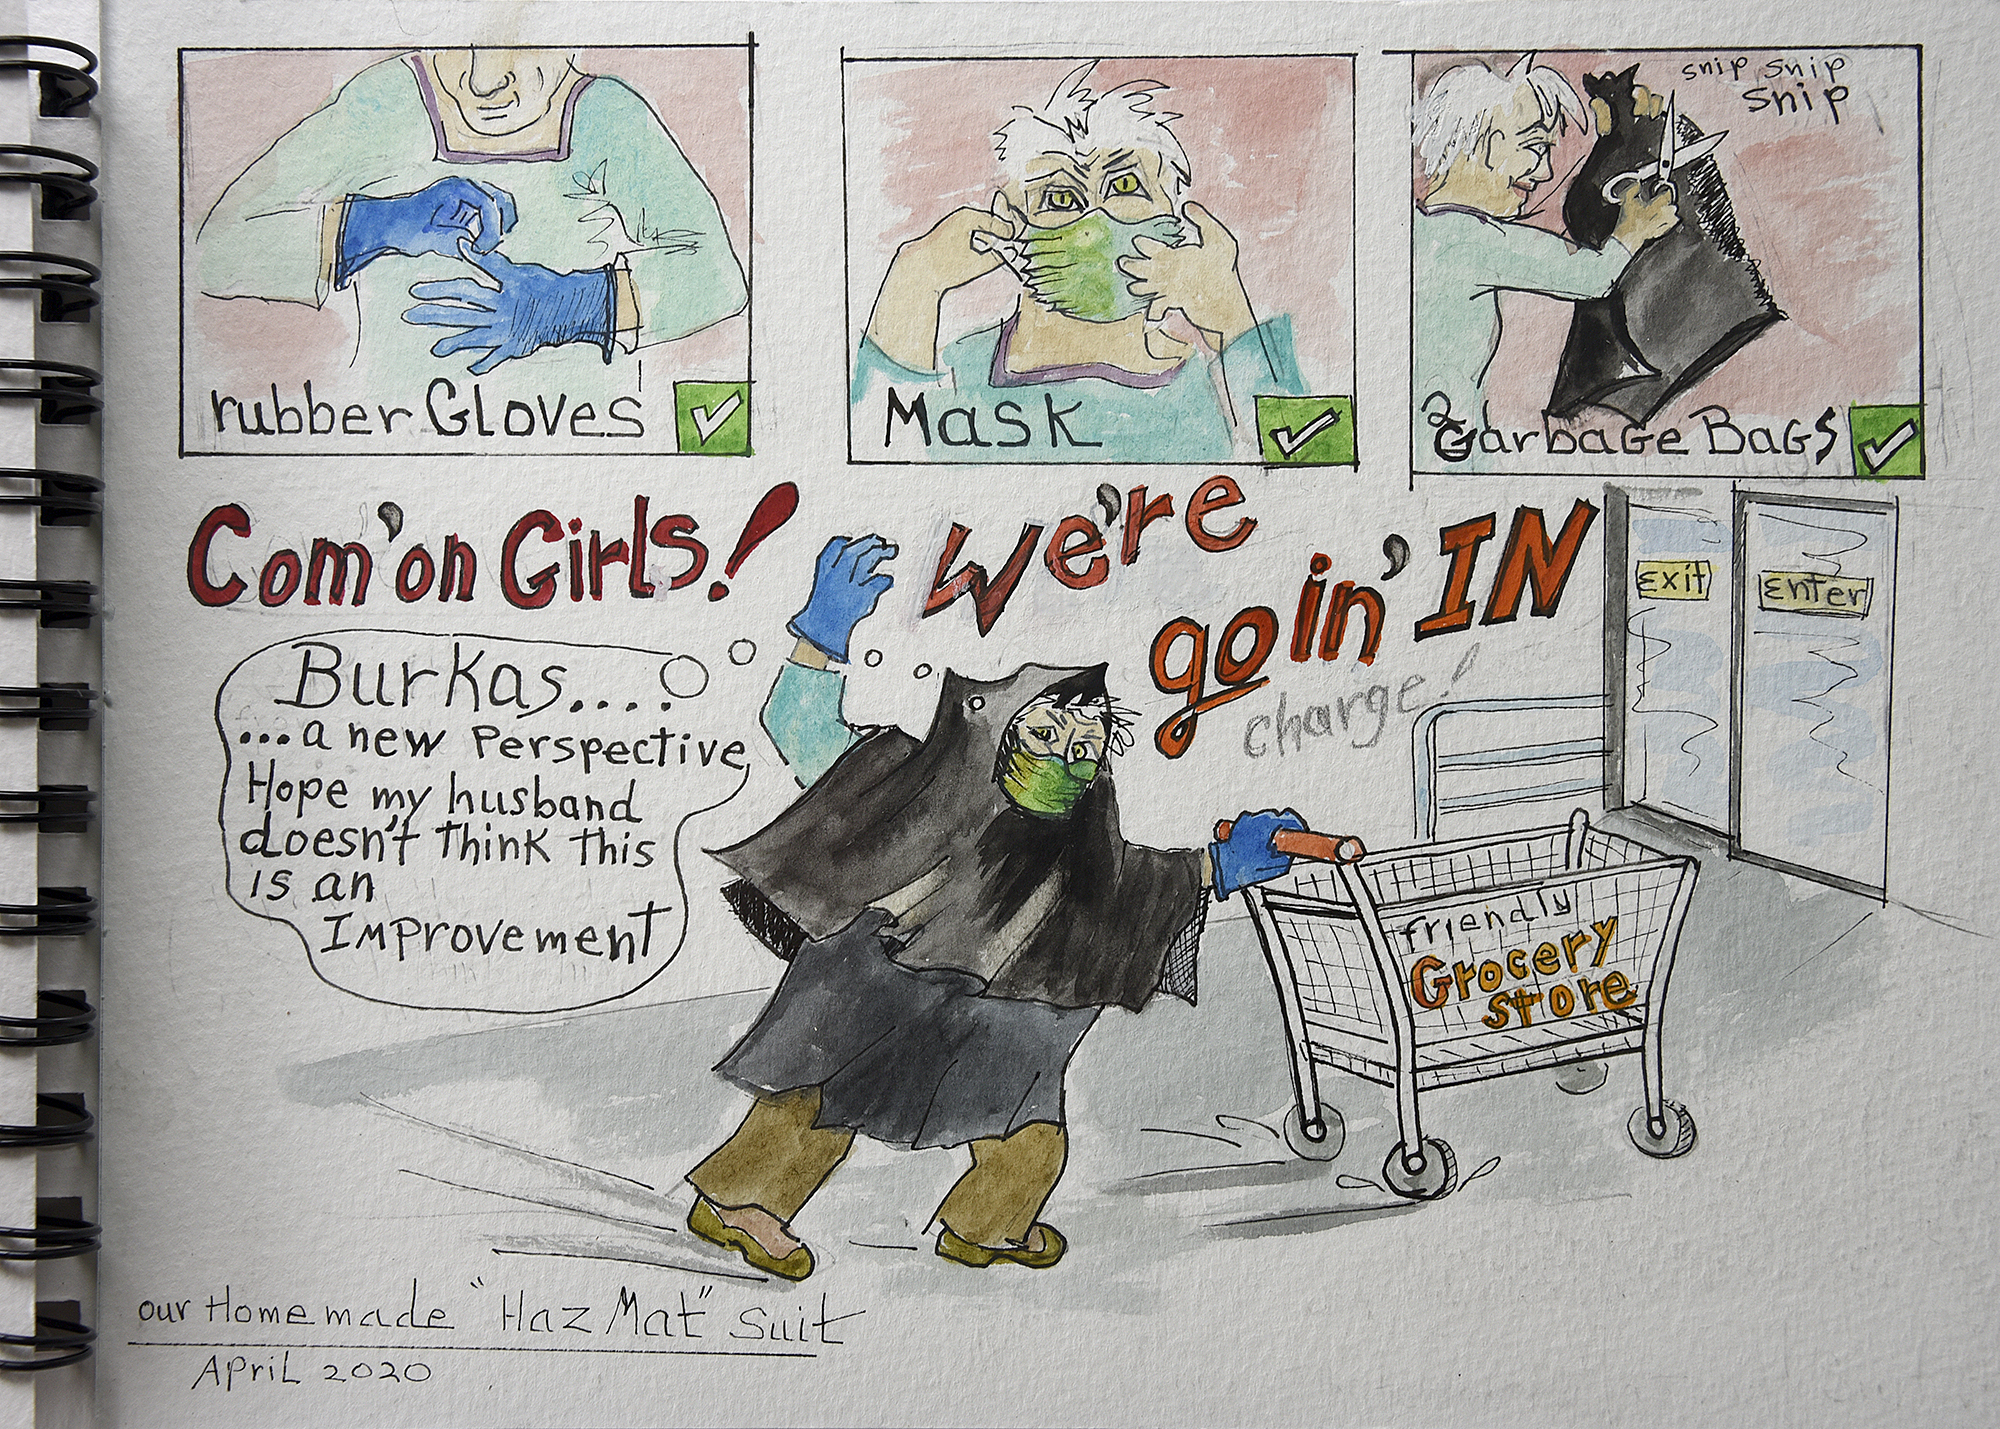 snip snip
snip
rubber Gloves
Mask
2 Garbage Bags
Com'on Girls!
We're
goin' IN
charge!
Exit
Enter
Burkas....
...a new Perspective
Hope my husband
doesn't think this
is an
Improvement
friendly
Grocery
store
our Homemade "Haz Mat" suit
April 2020